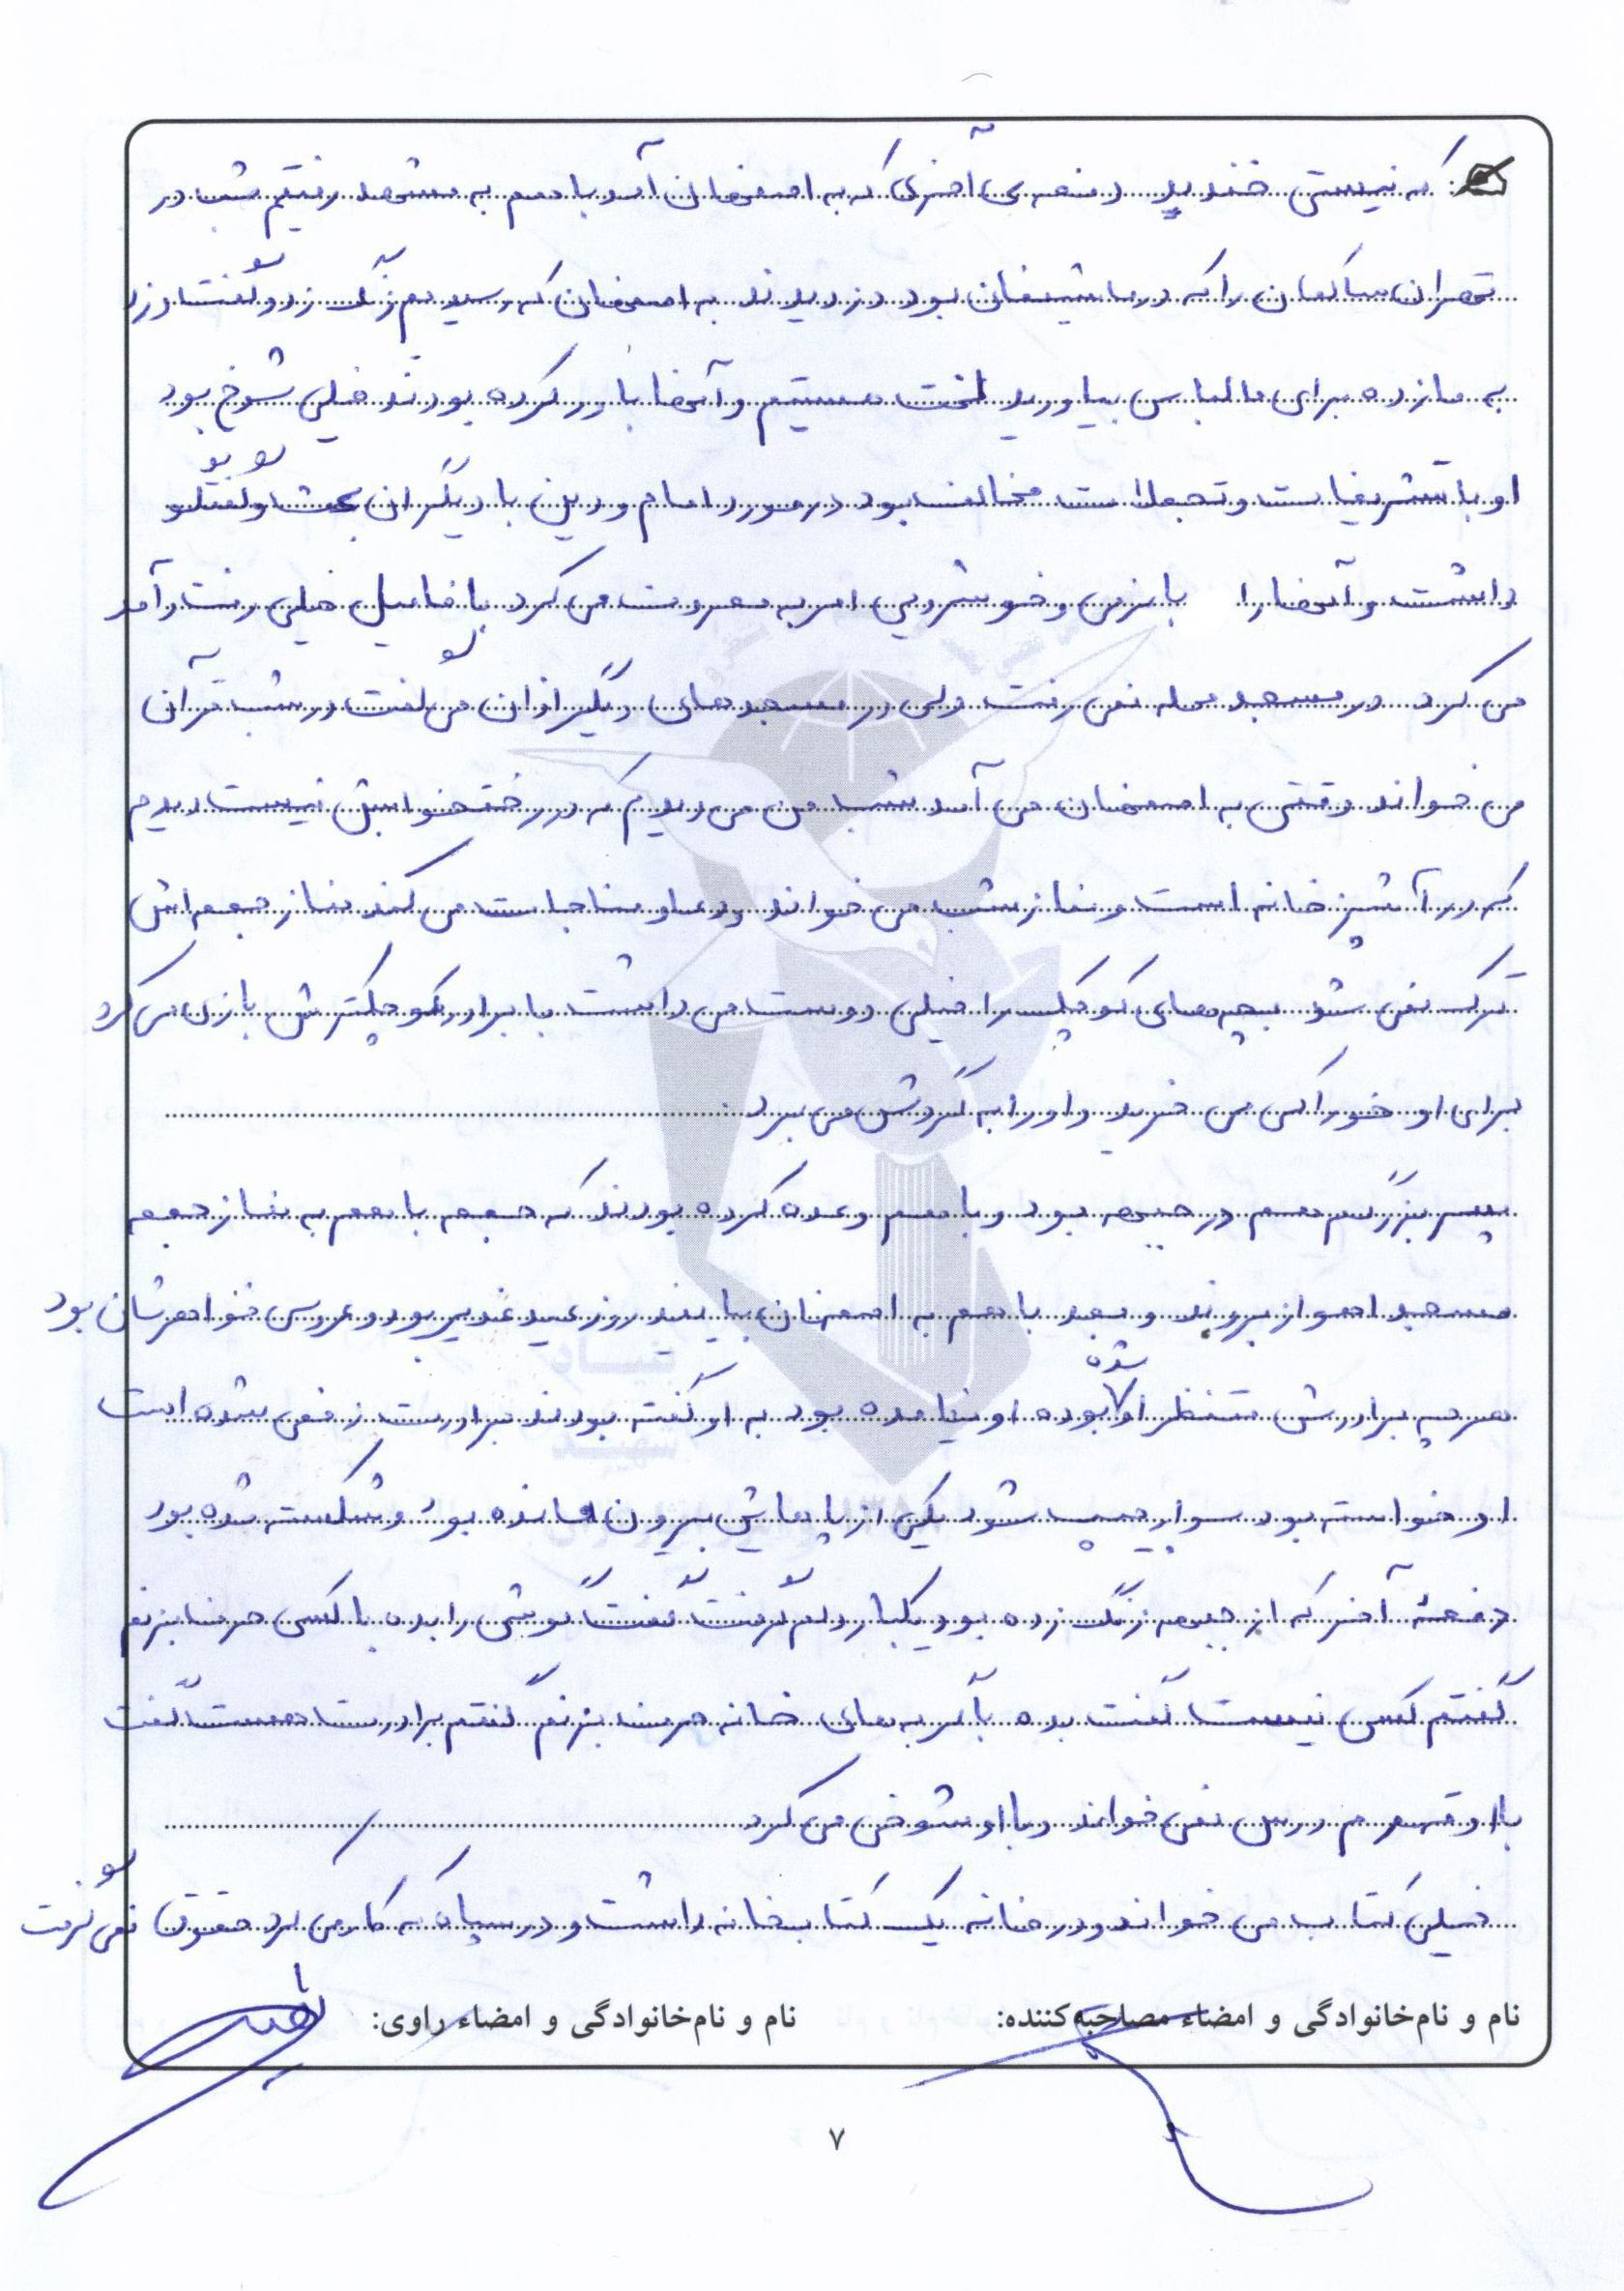 که نیستی خندید دفعه ی آخری که به اصفهان آمد با هم به مشهد رفتیم شب در
تهران ساکمان را که در ماشینمان بود دزدیدند به اصفهان که رسیدیم زنگ زد و گفت دزد
به ما زده برای ما لباس بیاورید لخت هستیم و آنها باور کرده بودند خیلی شوخ بود
او با تشریفات و تجملات مخالف بود در مورد امام و دین با دیگران بحث و گفتگو
داشت و آنها را با نرمی و خوشرویی امر به معروف می کرد با فامیل خیلی رفت و آمد
می کرد در مسجد محله نمی رفت ولی در مسجدهای دیگر اذان می گفت در شب قرآن
می خواند وقتی به اصفهان می آمد شب من می دیدم که در رختخوابش نیست دیدم
که در آشپزخانه است و نماز شب می خواند و دعا و مناجات می کند نماز جمعه اش
ترک نمی شد بچه های کوچک را خیلی دوست می داشت با برادر کوچکترش بازی می کرد
برای او خوراکی می خرید و او را به گردش می برد
پسر بزرگم هم در جبهه بود و با هم وعده کرده بودند که جمعه با هم به نماز جمعه
مسجد اهواز بروند و بعد با هم به اصفهان بیایند روز عید غدیر بود و عروسی خواهرشان بود
هر چه برادرش منتظر او شده بوده او نیامده بود به او گفته بودند برادرت زخمی شده است
او خواسته بود سوار جیپ شود یکی از پاهایش بیرون مانده بود و شکسته شده بود
دفعهٔ آخر که از جبهه زنگ زده بود یکبار دلم گرفت گفت گوشی را بده با کسی حرف بزنم
گفتم کسی نیست گفت بده با گربه های خانه حرف بزنم گفتم برادرت هست گفت
با او قهرم درس نمی خواند و با او شوخی می کرد
خیلی کتاب می خواند و در خانه یک کتابخانه داشت و در سپاه که کار می کرد حقوق نمی گرفت
نام و نام‌خانوادگی و امضاء مصاحبه‌کننده:
نام و نام‌خانوادگی و امضاء راوی:
۷